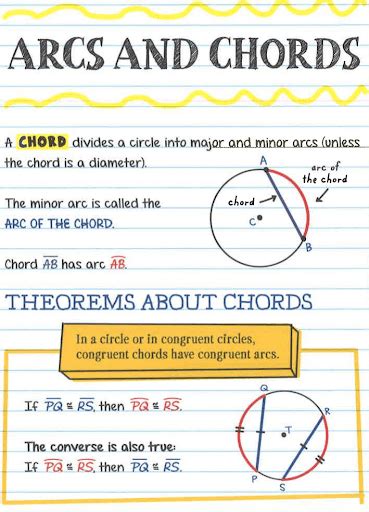 ARCS AND CHORDS
A CHORD divides a circle into major and minor arcs (unless
the chord is a diameter).
A
arc of
the chord
The minor arc is called the
ARC OF THE CHORD.
chord
C
B
Chord A̅B̅ has arc A͡B.
THEOREMS ABOUT CHORDS
In a circle or in congruent circles,
congruent chords have congruent arcs.
Q
R
If P̅Q̅ ≅ R̅S̅, then P͡Q ≅ R͡S.
T
The converse is also true:
If P͡Q ≅ R͡S, then P̅Q̅ ≅ R̅S̅.
P
S